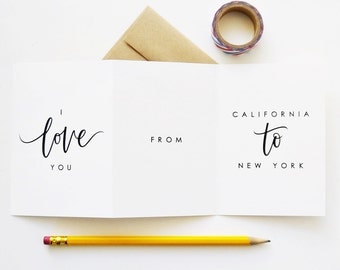 I
love
YOU
FROM
CALIFORNIA
to
NEW YORK